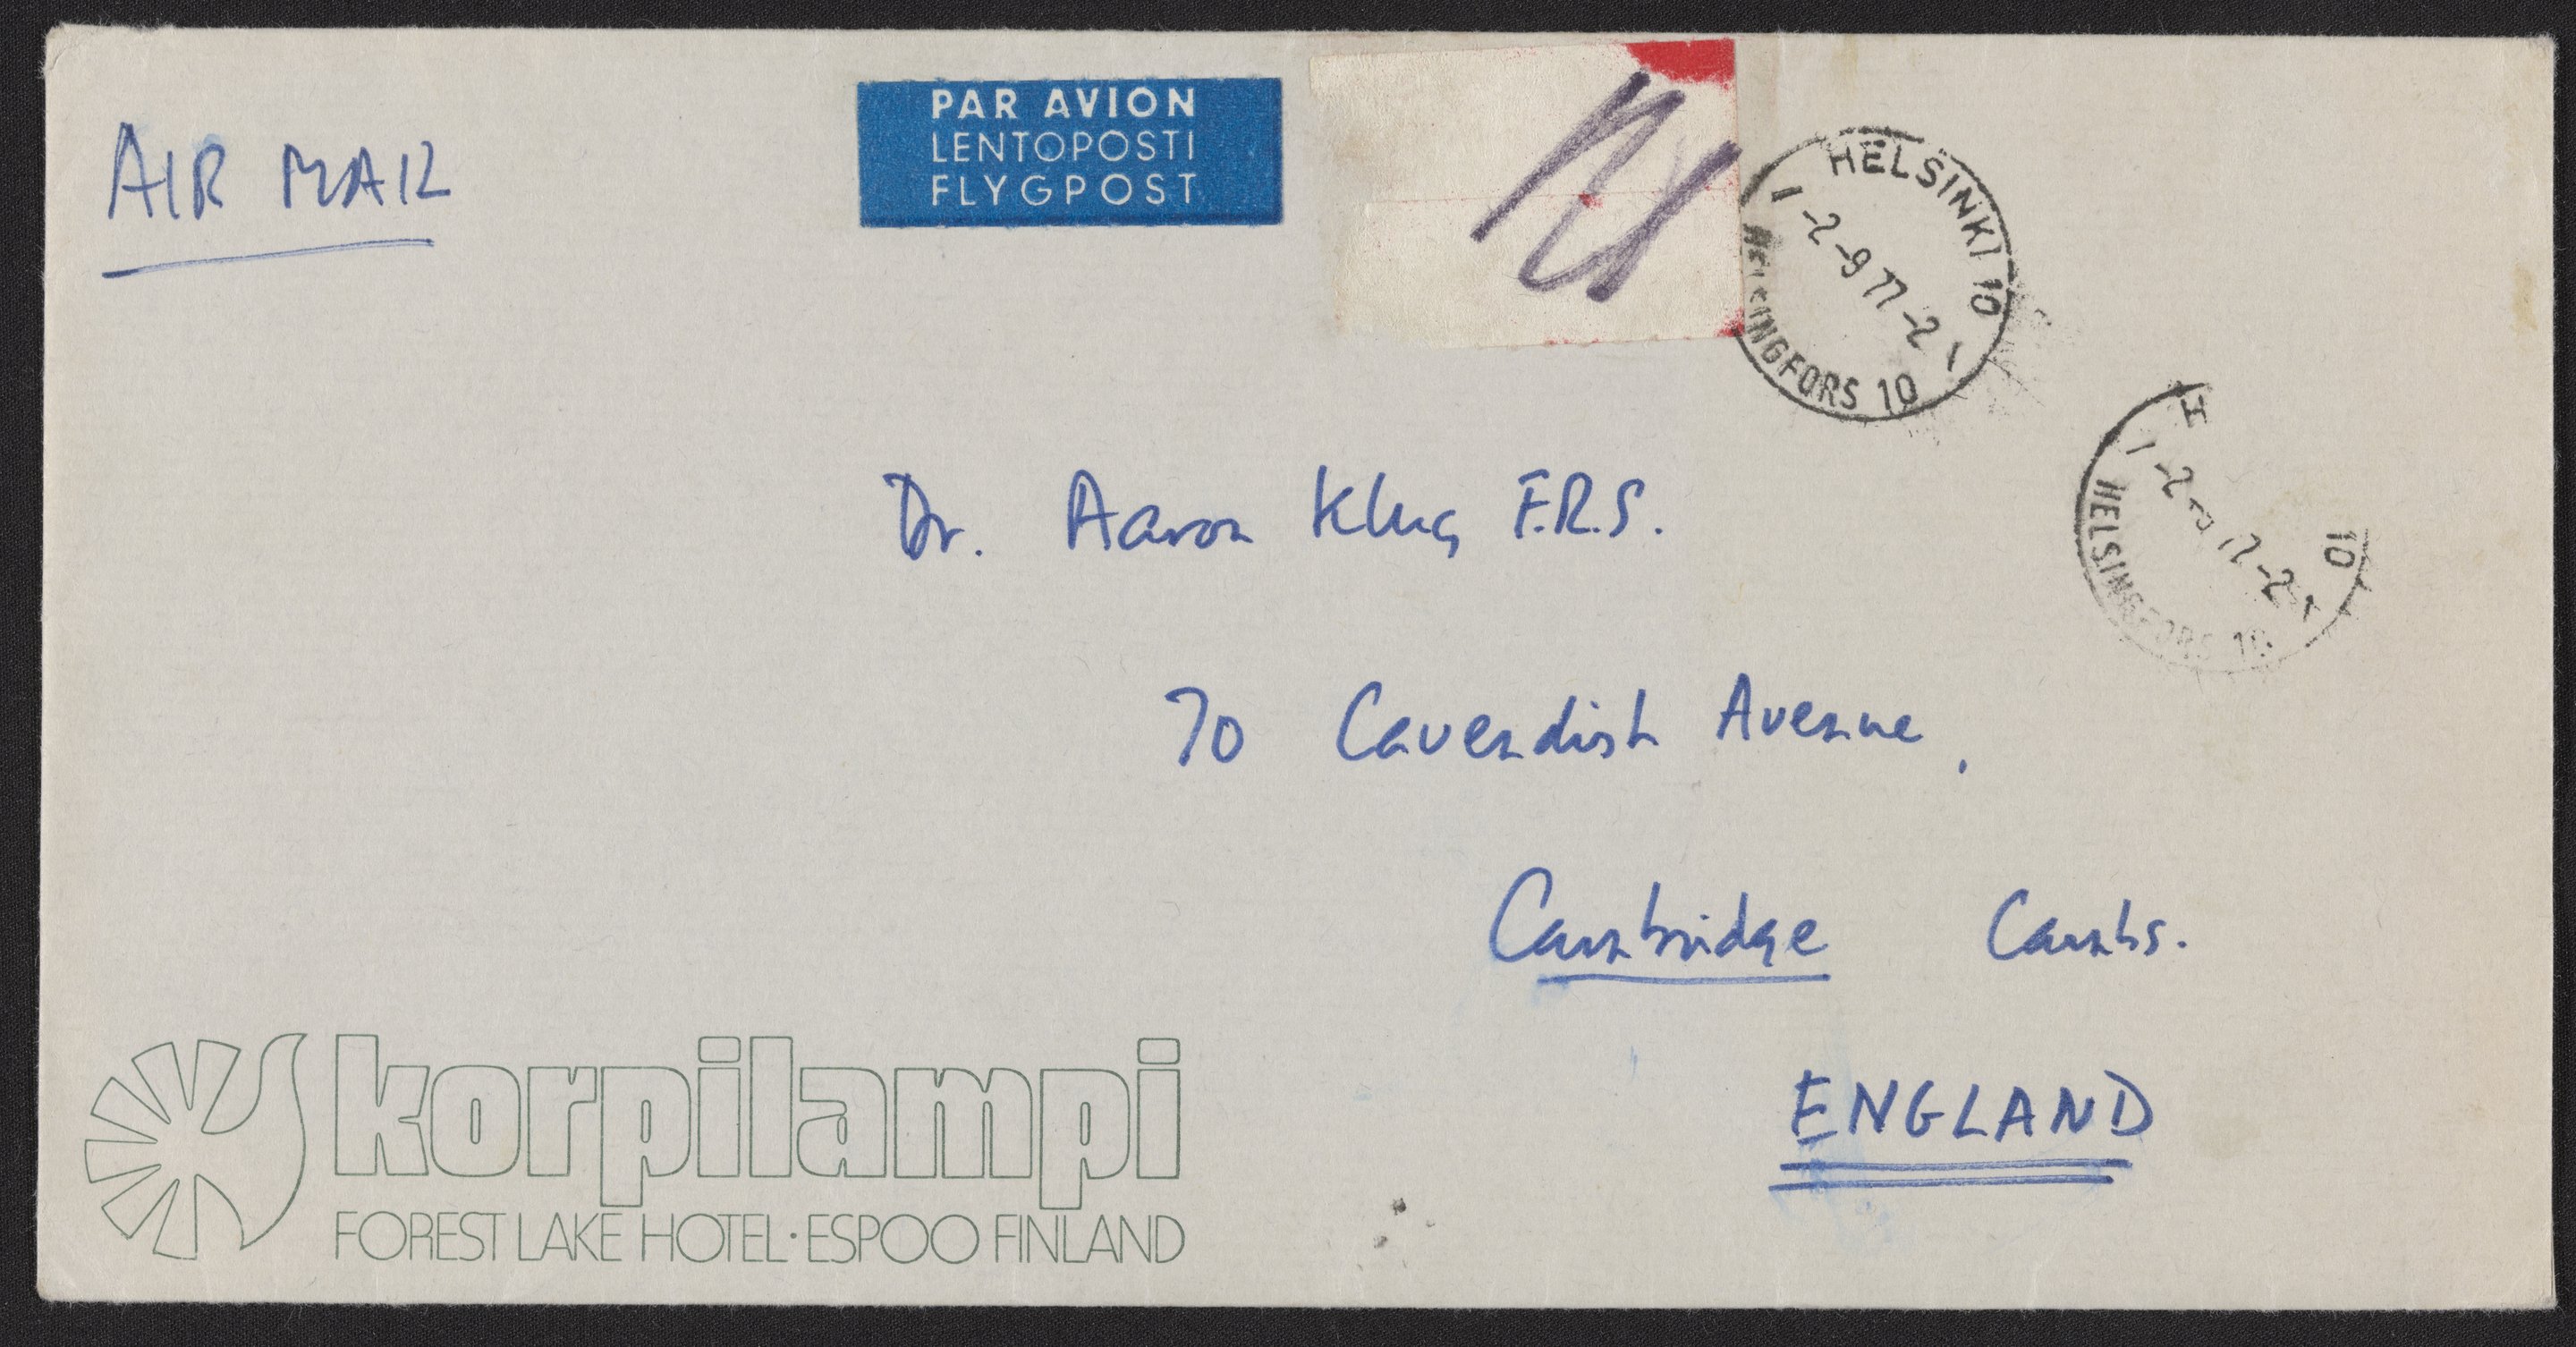 AIR MAIL
PAR AVION
LENTOPOSTI
FLYGPOST
HELSINKI 10
1 -2 -9 77 -2 1
HELSINGFORS 10
H 10
1 -2 77 -2 1
HELSINGFORS 10
Dr. Aaron Klug F.R.S.
70 Cavendish Avenue,
Cambridge Cambs.
ENGLAND
korpilampi
FOREST LAKE HOTEL · ESPOO FINLAND